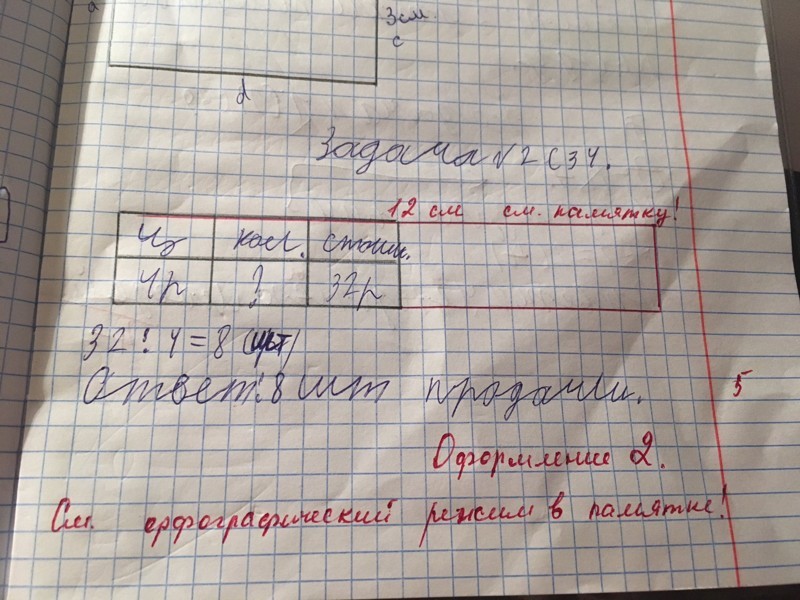 3см
с
d
Задача №2 С 34.
12 см см. памятку!
Цз кол. стоим.
4р ? 32р
32 : 4 = 8 (шт)
Ответ: 8 шт продачи.
5
Оформление 2.
См. орфографический режим в памятке!